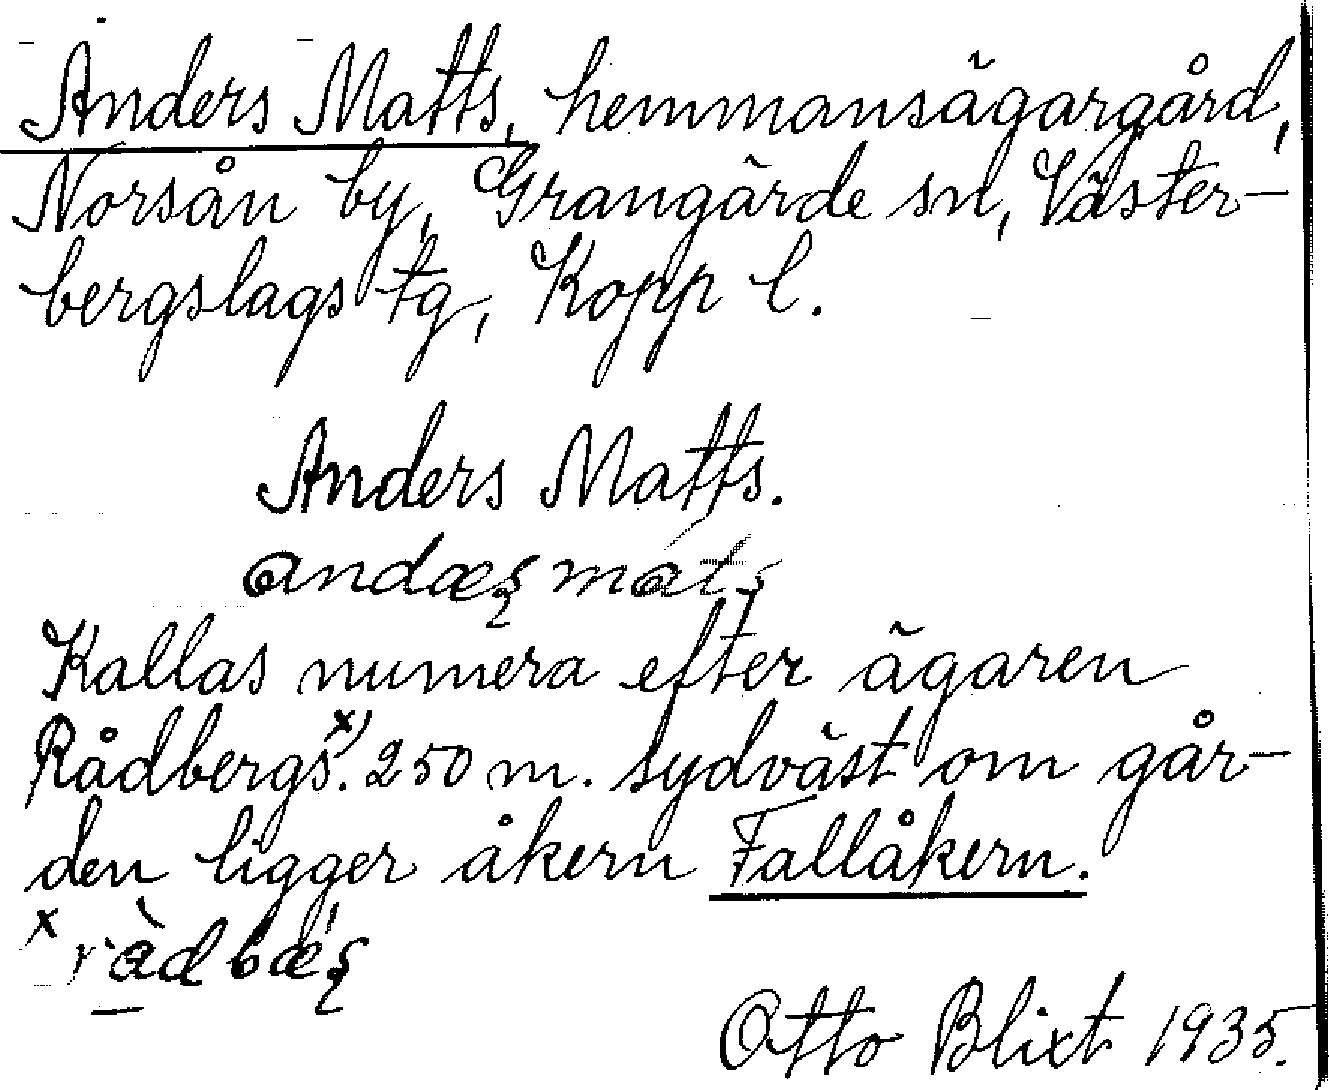 Anders Matts, hemmansägargård,
Norsån by, Grangärde sn, Väster-
bergslags tg, Kopp l.
Anders Matts.
andæʂ mats
Kallas numera efter ägaren
Rådbergs.x) 250 m. sydväst om går-
den ligger åkern Fallåkern.
x ràdbæʂ
Otto Blixt 1935.